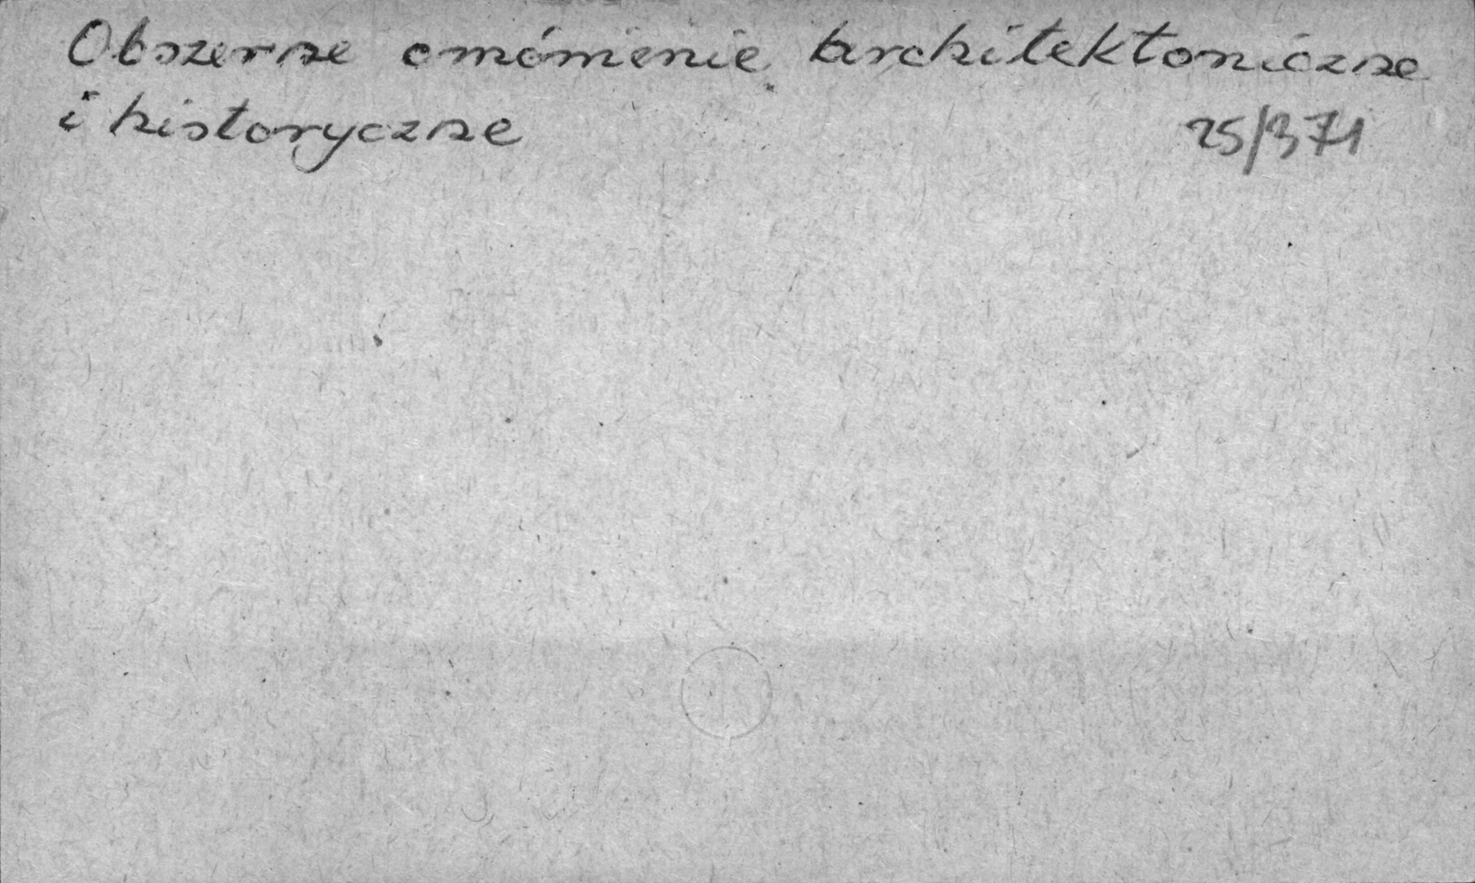 Obszerne omówienie architektoniczne
i historyczne
25/371